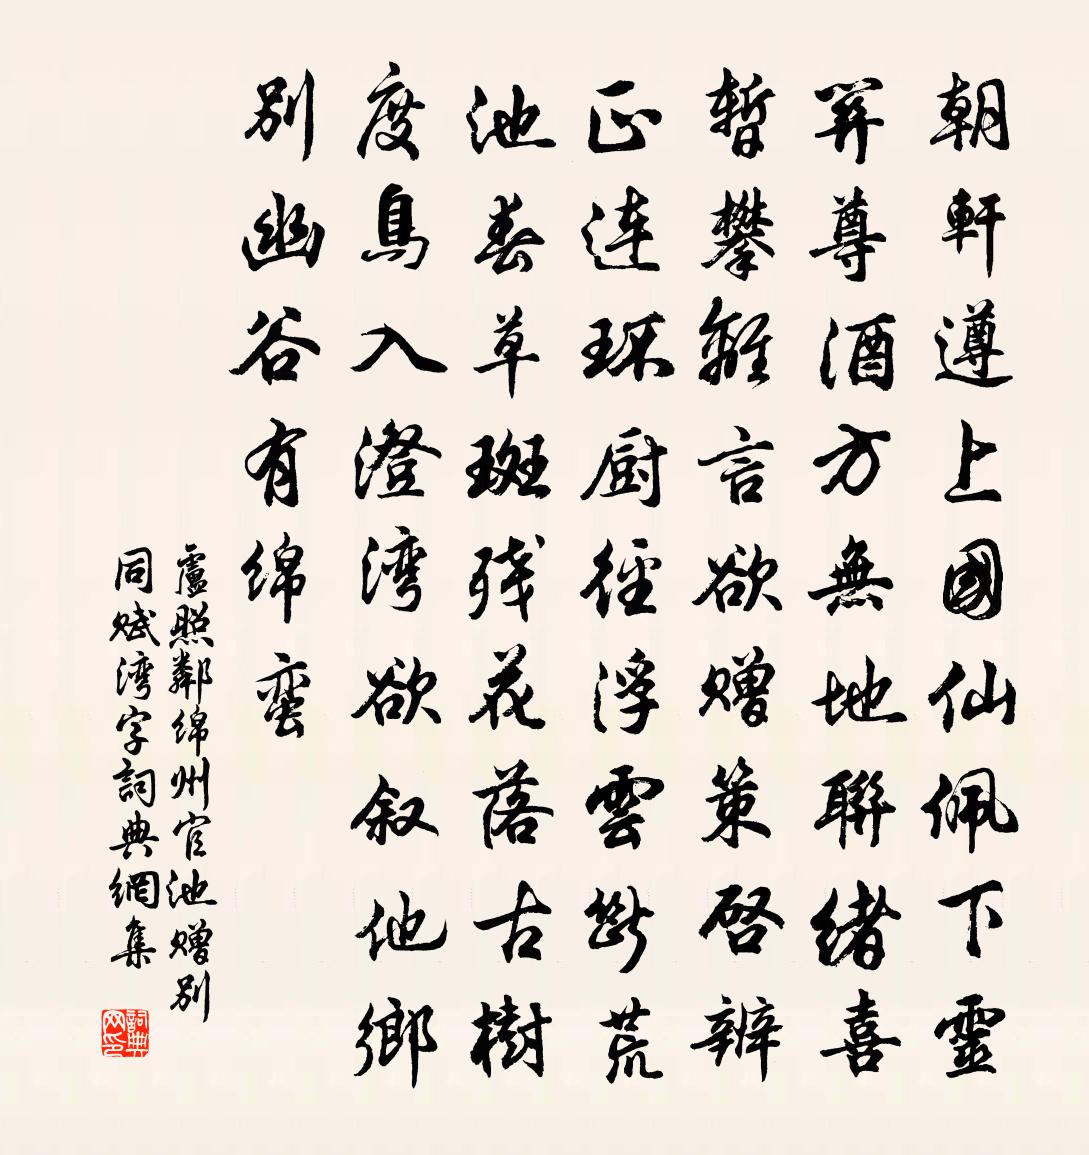 朝軒遵上國仙佩下靈
關尊酒方無地聯緒喜
暫攀離言欲赠策啓辨
正連环廚徑浮雲斷荒
池春草斑残花落古樹
度鳥入澄湾欲叙他鄉
别幽谷有绵蛮
盧照鄰绵州官池赠别
同赋湾字詞典網集
詞典
网印